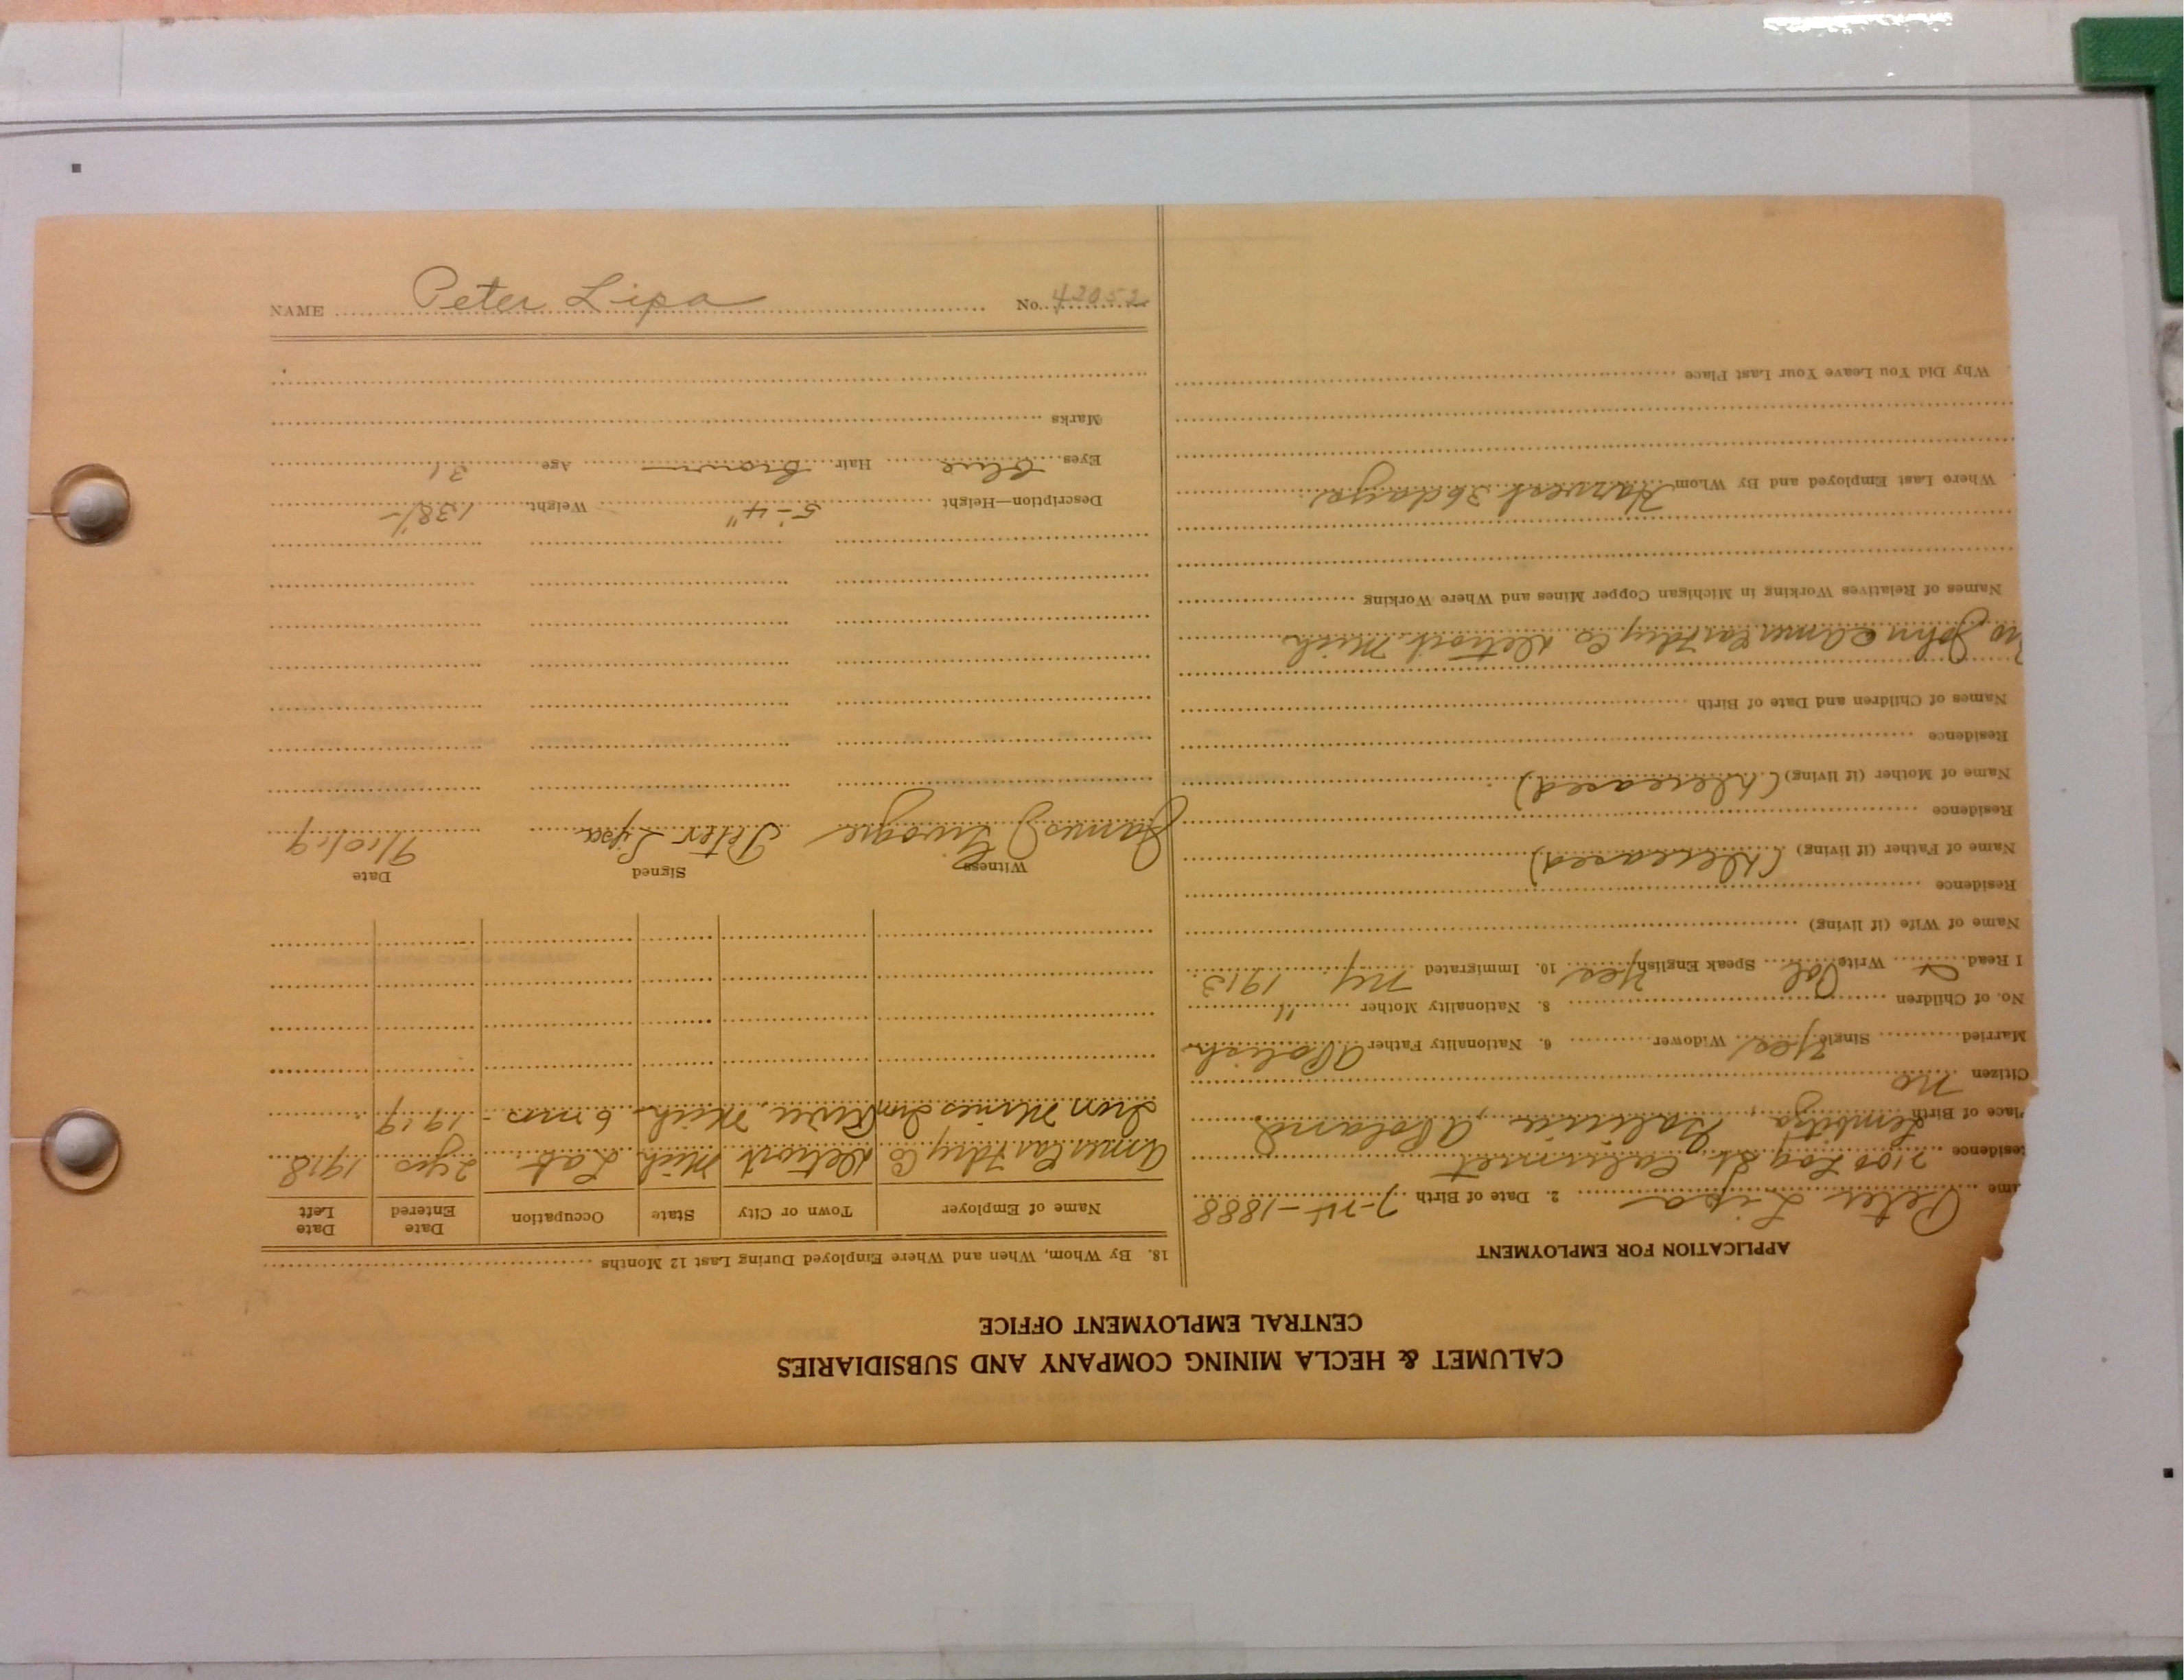 CALUMET & HECLA MINING COMPANY AND SUBSIDIARIES
CENTRAL EMPLOYMENT OFFICE
APPLICATION FOR EMPLOYMENT
ame Peter Lipa 2. Date of Birth 7-1888
esidence 2100 Log St. Calumet
lace of Birth Galicia, Poland
Citizen no
Married Single Yes Widower 6. Nationality Father Polish
No. of Children 8. Nationality Mother "
I Read Write Pol Speak English Yes 10. Immigrated NY 1913
Name of Wife (if living)
Residence
Name of Father (if living) (Deceased)
Residence
Name of Mother (if living) (Deceased)
Residence
Names of Children and Date of Birth
John Amer Car Fdry Co Detroit Mich
Names of Relatives Working in Michigan Copper Mines and Where Working
Where Last Employed and By Whom Harvest 36 days
Why Did You Leave Your Last Place
18. By Whom, When and Where Employed During Last 12 Months
Name of Employer Town or City State Occupation Date Entered Date Left
Amer Car Fdry Co Detroit Mich Lab 2 yrs 1918
Iron Mines Iron River Mich 6 mos - 1919
Witness Signed Date
James Peter Lipa 9/10/19
Description—Height 5'-4" Weight 138
Eyes Blue Hair Brown Age 31
Marks
NAME Peter Lipa No. 42052